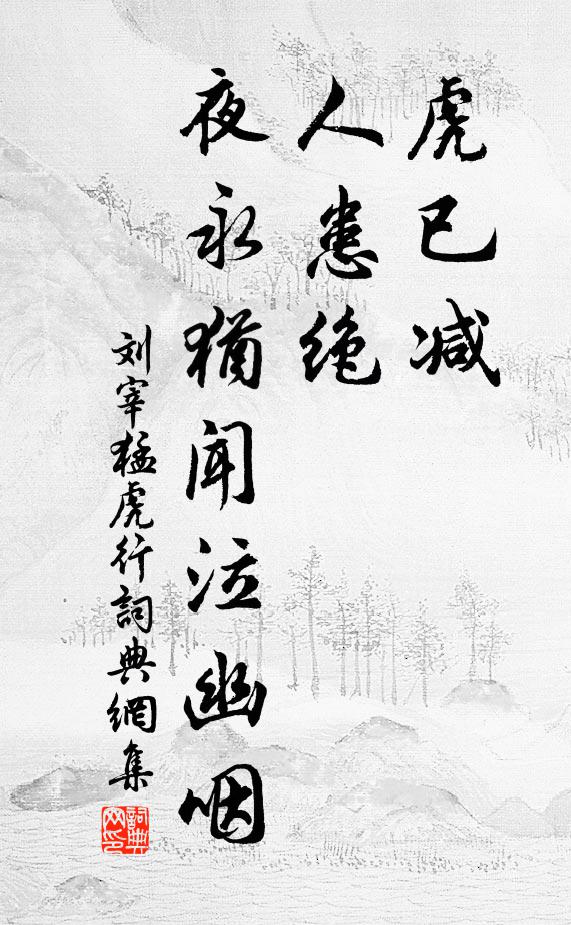 虎已减
人患绝
夜永猶闻泣幽咽
刘宰猛虎行詞典網集
詞典网印